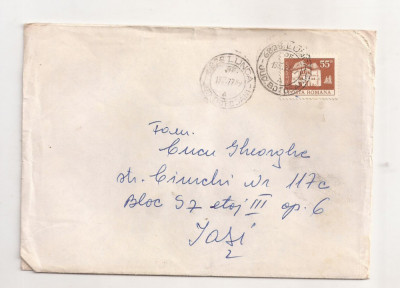 55
POSTA ROMANA
Fam.
Cucu Gheorghe
str. Ciurchi Nr 117c
Bloc S7 etaj III ap. 6
Iași
2